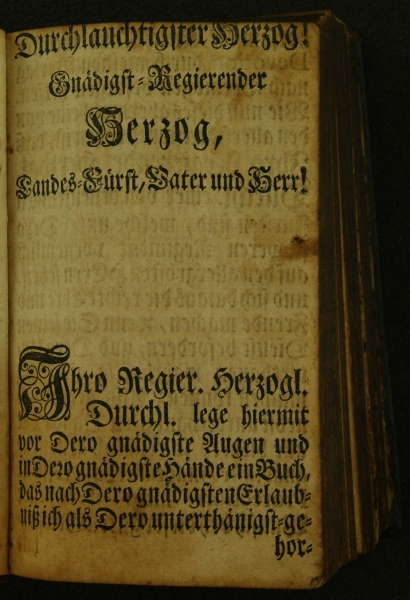 Durchlauchtigster Herzog!
Gnädigst-Regierender
Herzog,
Landes-Fürst, Vater und Herr!
Ihro Regier. Herzogl.
Durchl. lege hiermit
vor Dero gnädigste Augen und
in Dero gnädigste Hände ein Buch,
das nach Dero gnädigsten Erlaub-
niß ich als Dero unterthänigst-ge-
hor-